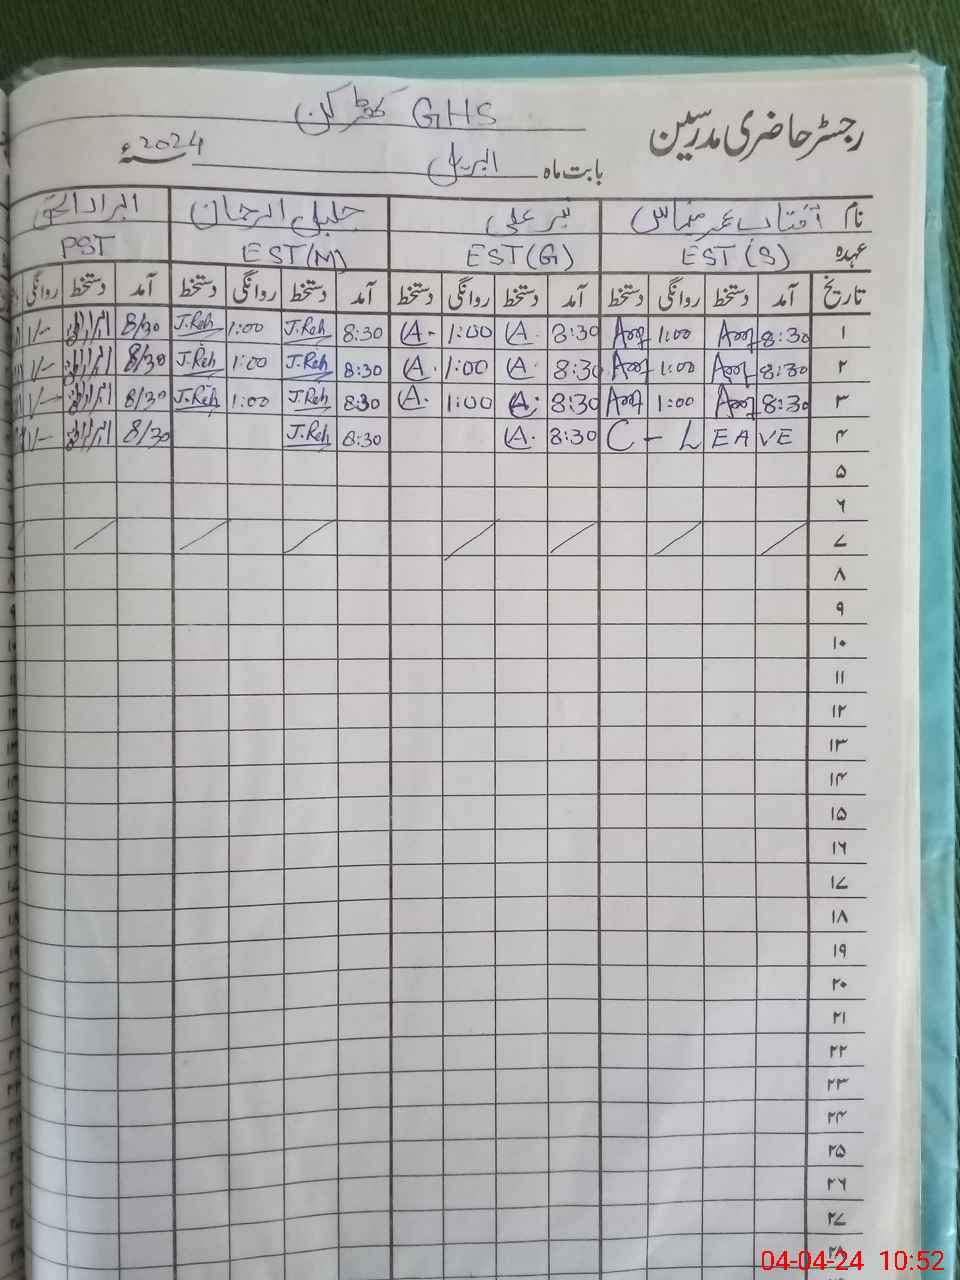 GHS
رجسٹر حاضری مدرسین
بابت ماہ اپریل سنہ 2024ء
نام آفتاب عمر شیر علی جلیل الرحمان ابرار الحق
عہدہ EST (S) EST (G) EST (M) PST
تاریخ آمد دستخط روانگی دستخط آمد دستخط روانگی دستخط آمد دستخط روانگی دستخط آمد دستخط روانگی
۱ 8:30 1:00 8:30 (A. 1:00 (A. 8:30 J.Reh 1:00 J.Reh 8/30 1/-
۲ 8:30 1:00 8:30 (A. 1:00 (A. 8:30 J.Reh 1:00 J.Reh 8/30 1/-
۳ 8:30 1:00 8:30 (A. 1:00 (A. 8:30 J.Reh 1:00 J.Reh 8/30 1/-
۴ C - LEAVE 8:30 (A. 8:30 J.Reh 8/30 1/-
۵
۶
۷
۸
۹
۱۰
۱۱
۱۲
۱۳
۱۴
۱۵
۱۶
۱۷
۱۸
۱۹
۲۰
۲۱
۲۲
۲۳
۲۴
۲۵
۲۶
۲۷
۲۸
04-04-24 10:52